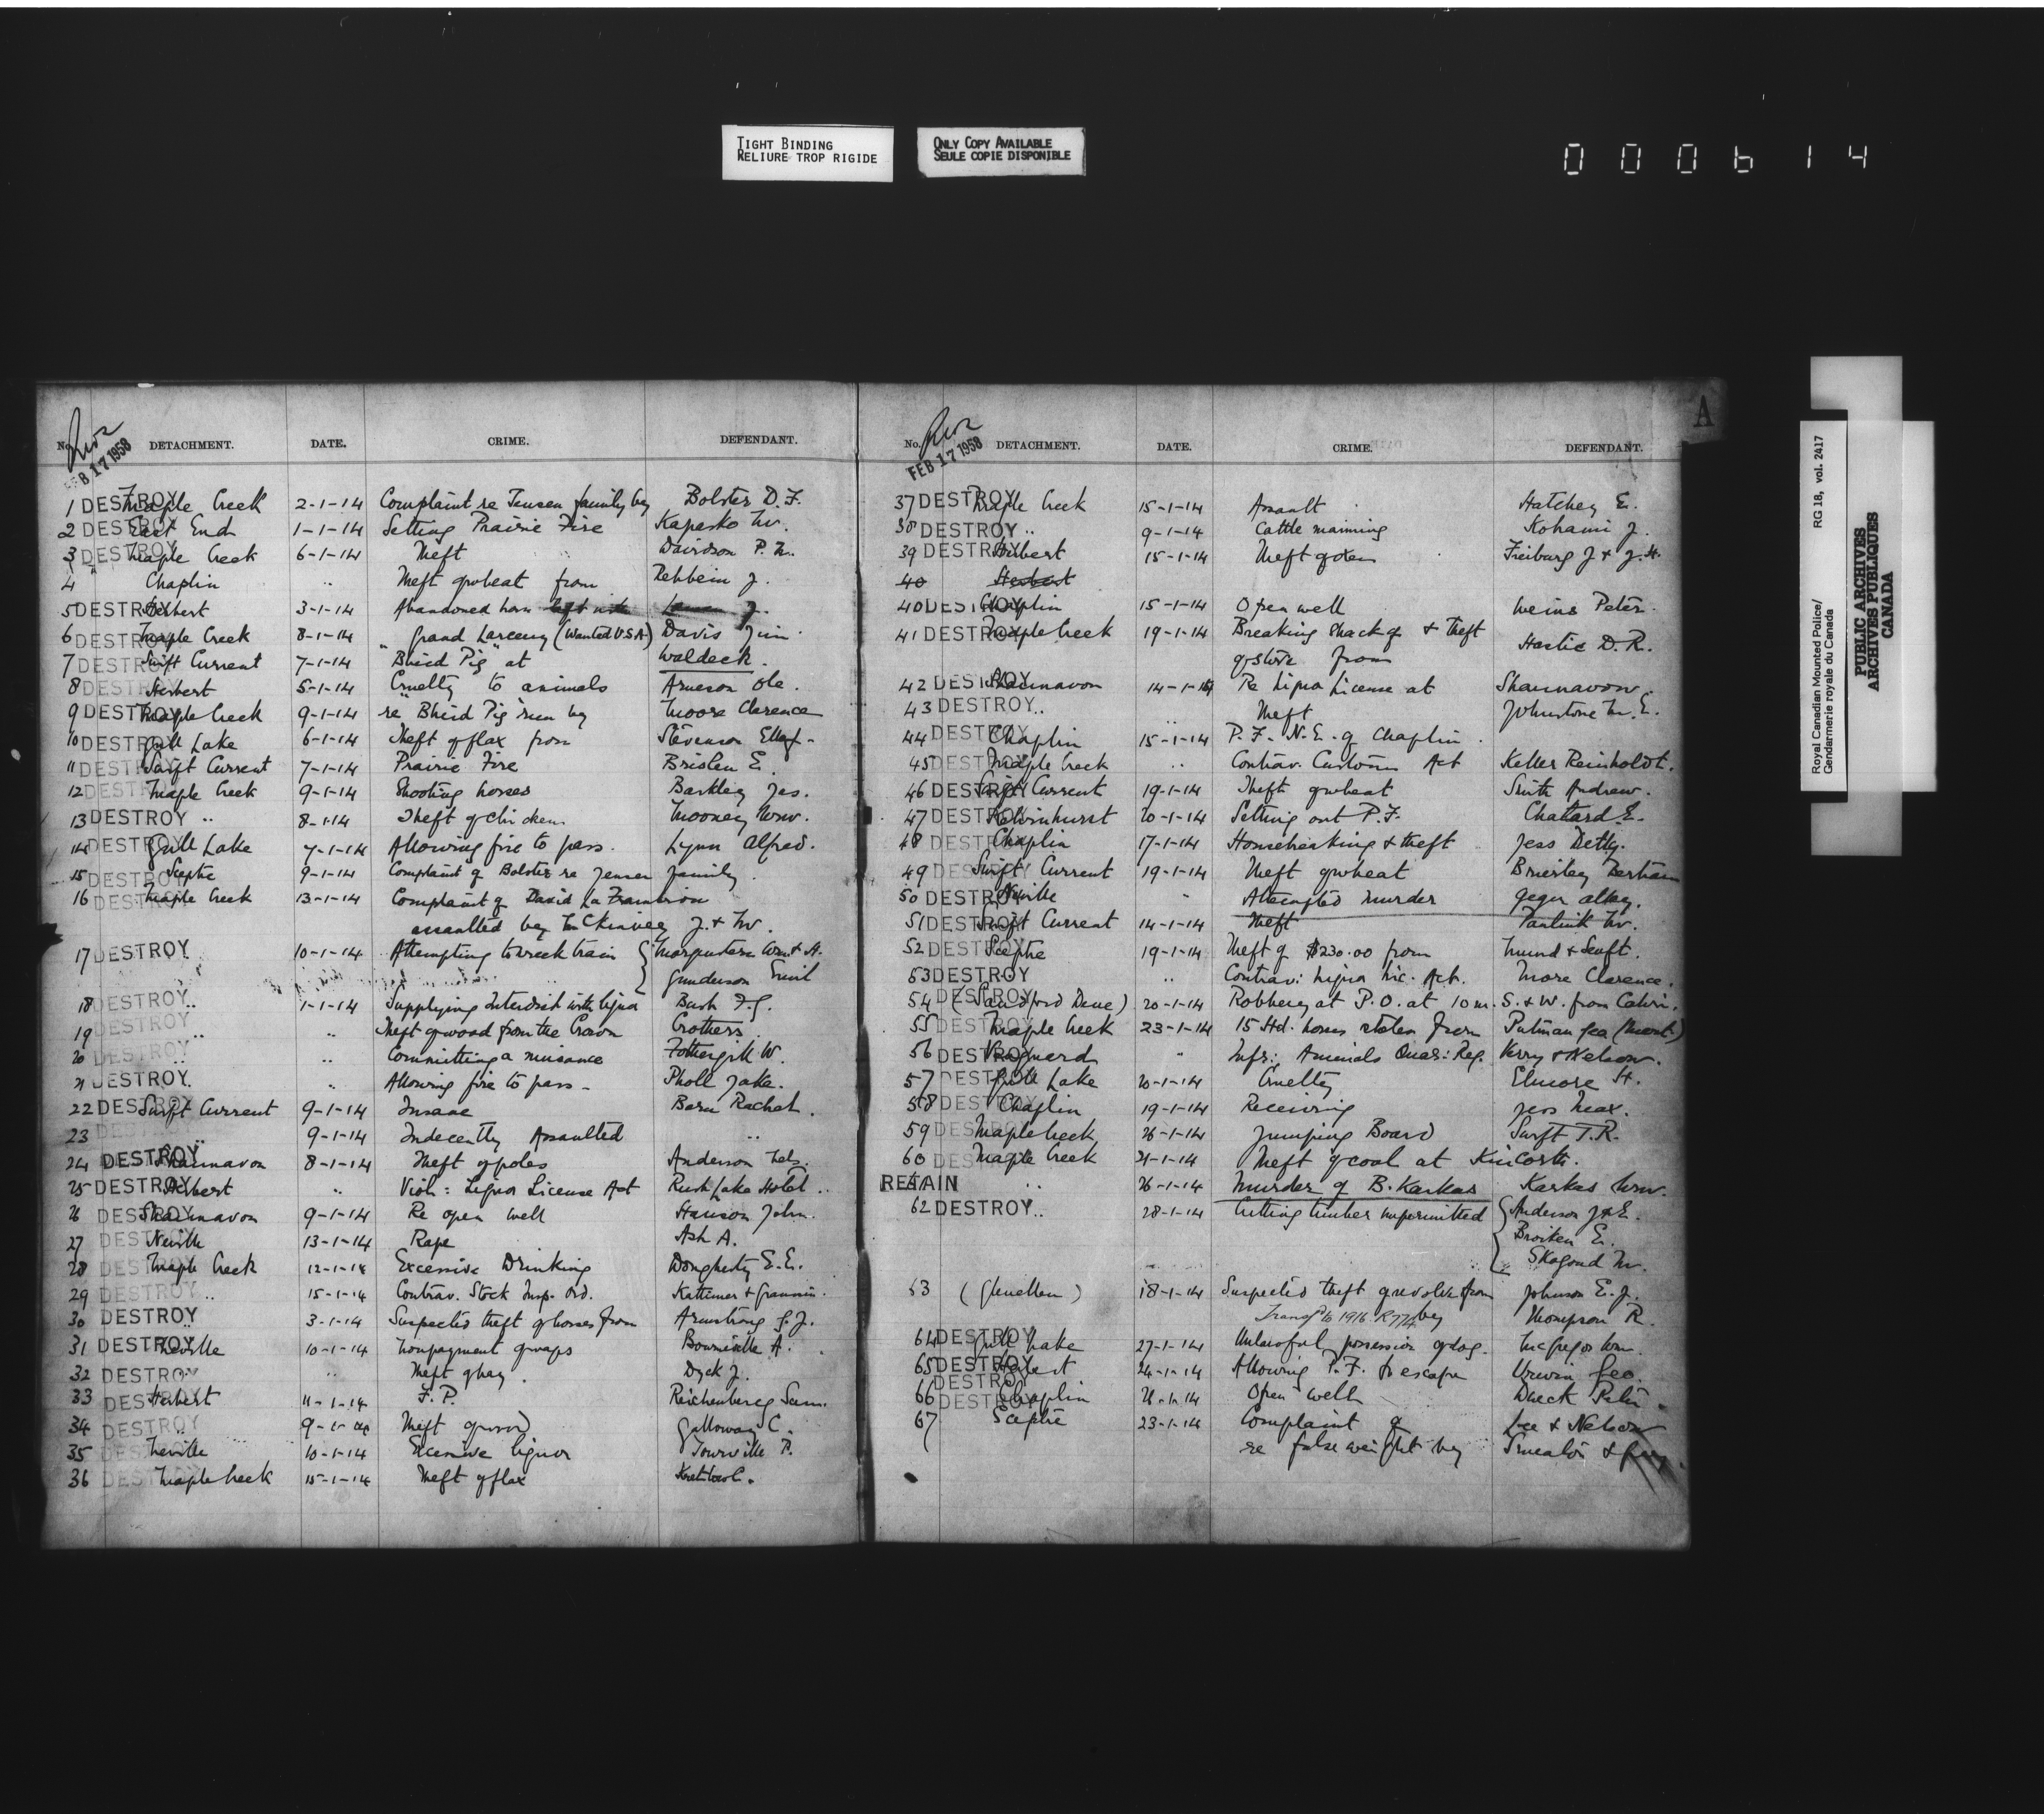 TIGHT BINDING
RELIURE TROP RIGIDE
ONLY COPY AVAILABLE
SEULE COPIE DISPONIBLE
000614
No. DETACHMENT. DATE. CRIME. DEFENDANT.
FEB 17 1958
1 DESTROY Maple Creek 2-1-14 Complaint re Jensen family by Bolster D.F.
2 DESTROY East End 1-1-14 Setting Prairie Fire Kapesko
3 DESTROY Maple Creek 6-1-14 Theft Davidson P.
4 " Chaplin .. Theft of wheat from Rehbein J.
5 DESTROY Herbert 3-1-14 Abandoned
6 DESTROY Maple Creek 8-1-14 Grand Larceny (Wanted U.S.A.) Davis Jim
7 DESTROY Swift Current 7-1-14 "Blind Pig" at Waldeck.
8 DESTROY Herbert 5-1-14 Cruelty to animals Arneson Ole.
9 DESTROY Maple Creek 9-1-14 re "Blind Pig" run by Moore Clarence
10 DESTROY Gull Lake 6-1-14 Theft of flax from Stevenson
11 DESTROY Swift Current 7-1-14 Prairie Fire E.
12 DESTROY Maple Creek 9-1-14 Shooting horses Barkley Jas.
13 DESTROY .. 8-1-14 Theft of chickens Mooney Wm.
14 DESTROY Gull Lake 7-1-14 Allowing fire to pass. Lynn Alfred.
15 DESTROY Sceptre 9-1-14 Complaint of Bolster re Jensen family
16 DESTROY Maple Creek 13-1-14 Complaint of David La
assaulted by J. &
17 DESTROY 10-1-14 Attempting to wreck train Wm. & A.
Gunderson Emil
18 DESTROY .. 1-1-14 Supplying Interdict with liquor Bush F.G.
19 DESTROY .. .. Theft of wood from the Crown Crothers
20 DESTROY .. .. Committing a nuisance Fothergill W.
21 DESTROY. .. Allowing fire to pass - Pholl Jake.
22 DESTROY Swift Current 9-1-14 Insane Barn Rachel.
23 DESTROY .. 9-1-14 Indecently Assaulted ..
24 DESTROY Shaunavon 8-1-14 Theft of poles Anderson
25 DESTROY Herbert .. Viol: Liquor License Act Rush Lake Hotel ..
26 DESTROY Shaunavon 9-1-14 Re open well Hanson John.
27 DESTROY Neville 13-1-14 Rape Ash A.
28 DESTROY Maple Creek 12-1-14 Excessive Drinking Dougherty E.E.
29 DESTROY .. 15-1-14 Contrav. Stock Insp. Ord.
30 DESTROY .. 3-1-14 Suspected theft of horses from Armstrong G.J.
31 DESTROY Neville 10-1-14 Nonpayment of wages Bournville A.
32 DESTROY .. Theft of hay. Dyck J.
33 DESTROY Herbert 11-1-14 F.P. Reichenberg Sam.
34 DESTROY 9-1-14 Theft of Galloway C.
35 DESTROY Neville 10-1-14 Excessive liquor Tourville P.
36 DESTROY Maple Creek 15-1-14 Theft of flax
No. DETACHMENT. DATE. CRIME. DEFENDANT.
FEB 17 1958
A
37 DESTROY Maple Creek 15-1-14 Assault Hatchey E.
38 DESTROY .. 9-1-14 Cattle maiming Kohami J.
39 DESTROY Herbert 15-1-14 Theft of oxen Freiburg J & J.H.
40 Herbert
40 DESTROY Chaplin 15-1-14 Open well Weins Peter.
41 DESTROY Maple Creek 19-1-14 Breaking Shack of & Theft Hastie D.R.
of stove from
42 DESTROY Shaunavon 14-1-14 Re Liquor License at Shaunavon.
43 DESTROY .. .. Theft Johnstone M.E.
44 DESTROY Chaplin 15-1-14 P.F. N.E. of Chaplin.
45 DESTROY Maple Creek .. Contrav. Customs Act Keller Reinholdt.
46 DESTROY Swift Current 19-1-14 Theft of wheat Smith Andrew.
47 DESTROY Kelvinhurst 20-1-14 Setting out P.F. Chatard E.
48 DESTROY Chaplin 17-1-14 Housebreaking & theft Jess Detty.
49 DESTROY Swift Current 19-1-14 Theft of wheat Brierley
50 DESTROY Neville " Attempted murder Geger
51 DESTROY Swift Current 14-1-14 Theft
52 DESTROY Sceptre 19-1-14 Theft of $230.00 from Mund & Senft.
53 DESTROY .. Contrav: Liquor Lic. Act. More Clarence.
54 DESTROY (Sandford Dene) 20-1-14 Robbery at P.O. at 10 m. S. & W. from Cabri.
55 DESTROY Maple Creek 23-1-14 15 Hd. horses stolen from Putman Geo (Mont.)
56 DESTROY Vanguard " Infr: Animals Quar: Reg. Kerry & Nelson.
57 DESTROY Gull Lake 20-1-14 Cruelty Elmore H.
58 DESTROY Chaplin 19-1-14 Receiving Jess Max.
59 DESTROY Maple Creek 26-1-14 Jumping Board Swift T.R.
60 DESTROY Maple Creek 21-1-14 Theft of coal at Kincorth.
RETAIN .. 26-1-14 Murder of B. Karkas Karkas Wm.
62 DESTROY .. 28-1-14 Cutting timber unpermitted Anderson J & E.
Broiten E.
Skogand M.
63 (Glenellen) 18-1-14 Suspected theft of revolver from Johnson E.J.
Transf to 1916 R774 by Thompson R.
64 DESTROY Gull Lake 27-1-14 Unlawful possession of dog. McGregor Wm.
65 DESTROY Herbert 24-1-14 Allowing P.F. to escape Urwin Geo.
DESTROY
66 DESTROY Chaplin 21-1-14 Open well Dueck Peter.
67 Sceptre 23-1-14 Complaint of Lee & Nelson
re false weight by
Royal Canadian Mounted Police/ RG 18, vol. 2417
Gendarmerie royale du Canada
PUBLIC ARCHIVES
ARCHIVES PUBLIQUES
CANADA